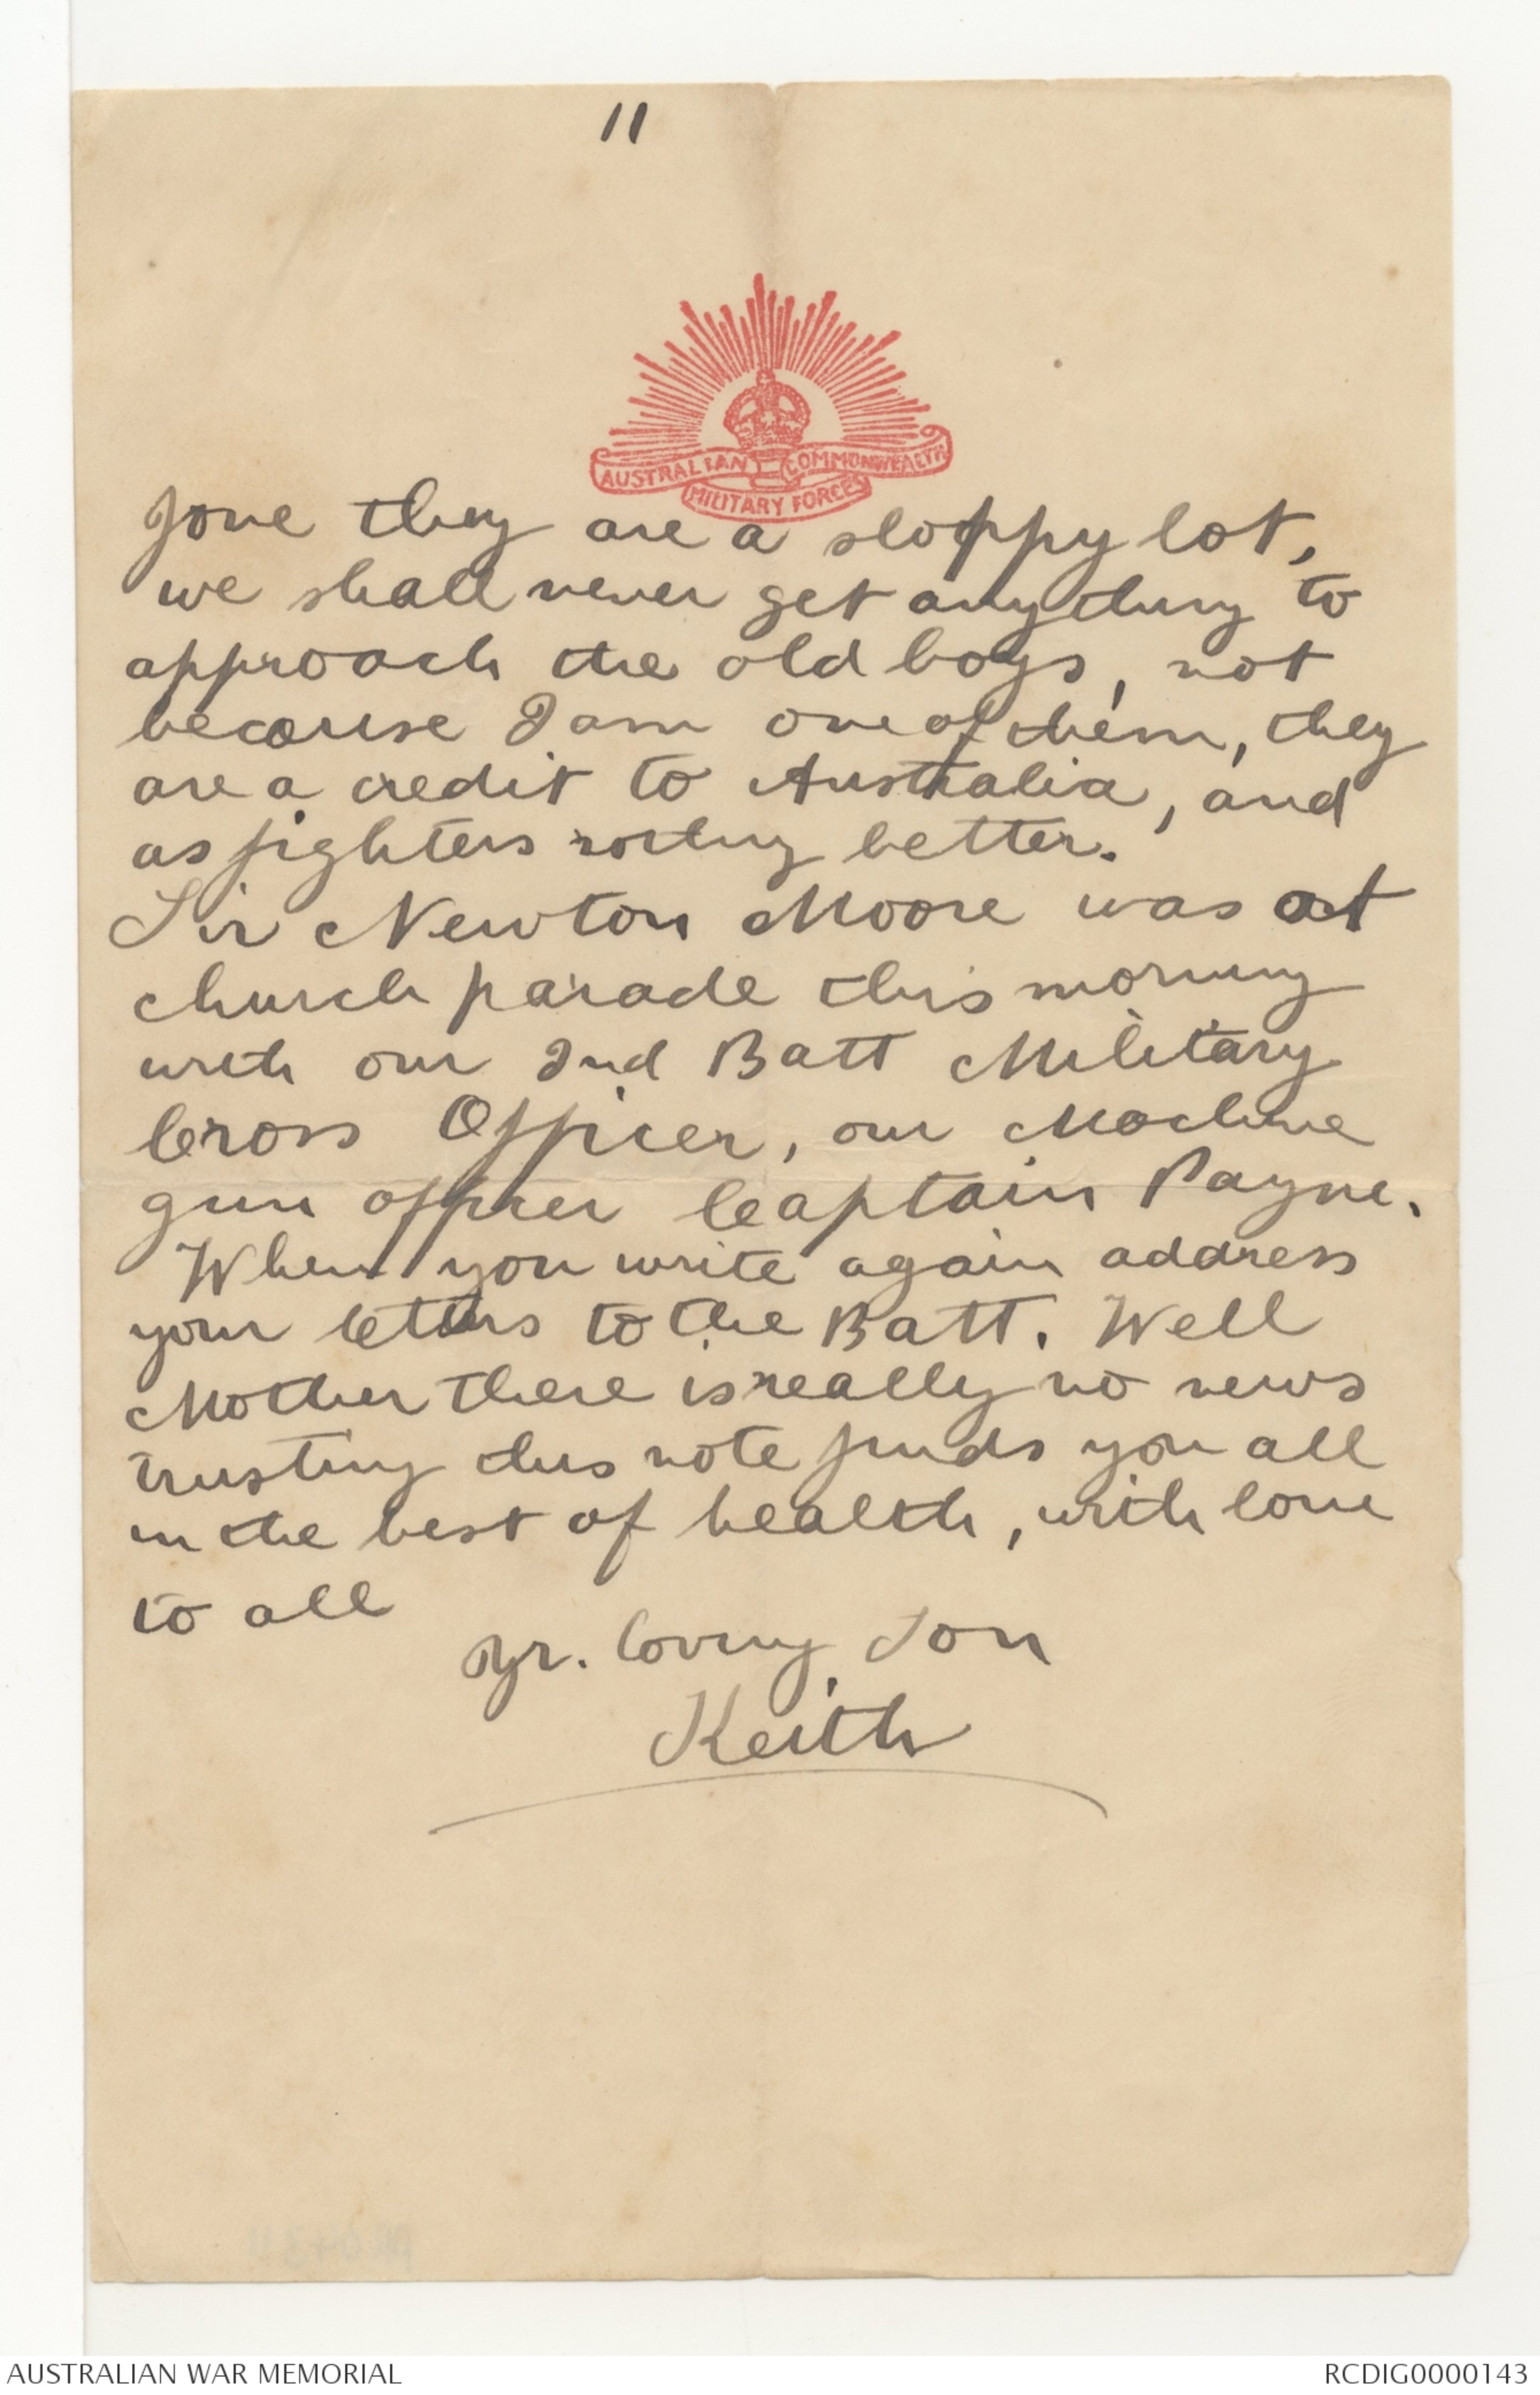 11
AUSTRALIAN COMMONWEALTH
MILITARY FORCES
Jove they are a sloppy lot,
we shall never get anything to
approach the old boys, not
because I am one of them, they
are a credit to Australia, and
as fighters nothing better.
Sir Newton Moore was at
church parade this morning
with our 2nd Batt Military
Cross Officer, our Machine
gun officer Captain Payne.
When you write again address
your letters to the Batt. Well
Mother there is really no news
trusting this note finds you all
in the best of health, with love
to all
Yr. loving Son
Keith
AUSTRALIAN WAR MEMORIAL
RCDIG0000143